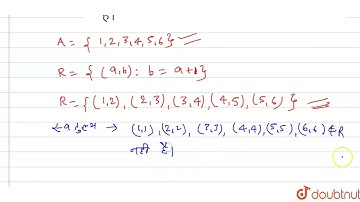 है।
A = { 1,2,3,4,5,6 }
R = { (a,b) : b = a+1 }
R = { (1,2) , (2,3) , (3,4) , (4,5) , (5,6) }
→ (1,1) , (2,2) , (3,3) , (4,4) , (5,5) , (6,6) ∉ R
नहीं है।
doubtnut